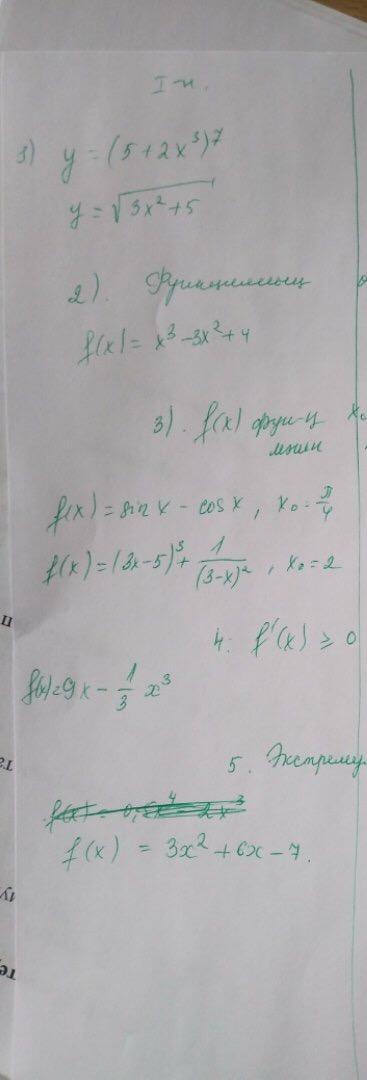 I-н.
1) y = (5+2x³)⁷
y = √3x²+5
2). Функцияның
f(x) = x³-3x²+4
3). f(x) функ-ң x₀
мәнін
f(x) = sin x - cos x, x₀ = π/4
f(x) = (3x-5)³ + 1/(3-x)², x₀ = 2
4: f'(x) ≥ 0
f(x) = 9x - 1/3 x³
5. Экстрему
f(x) = 3x² + 6x - 7.